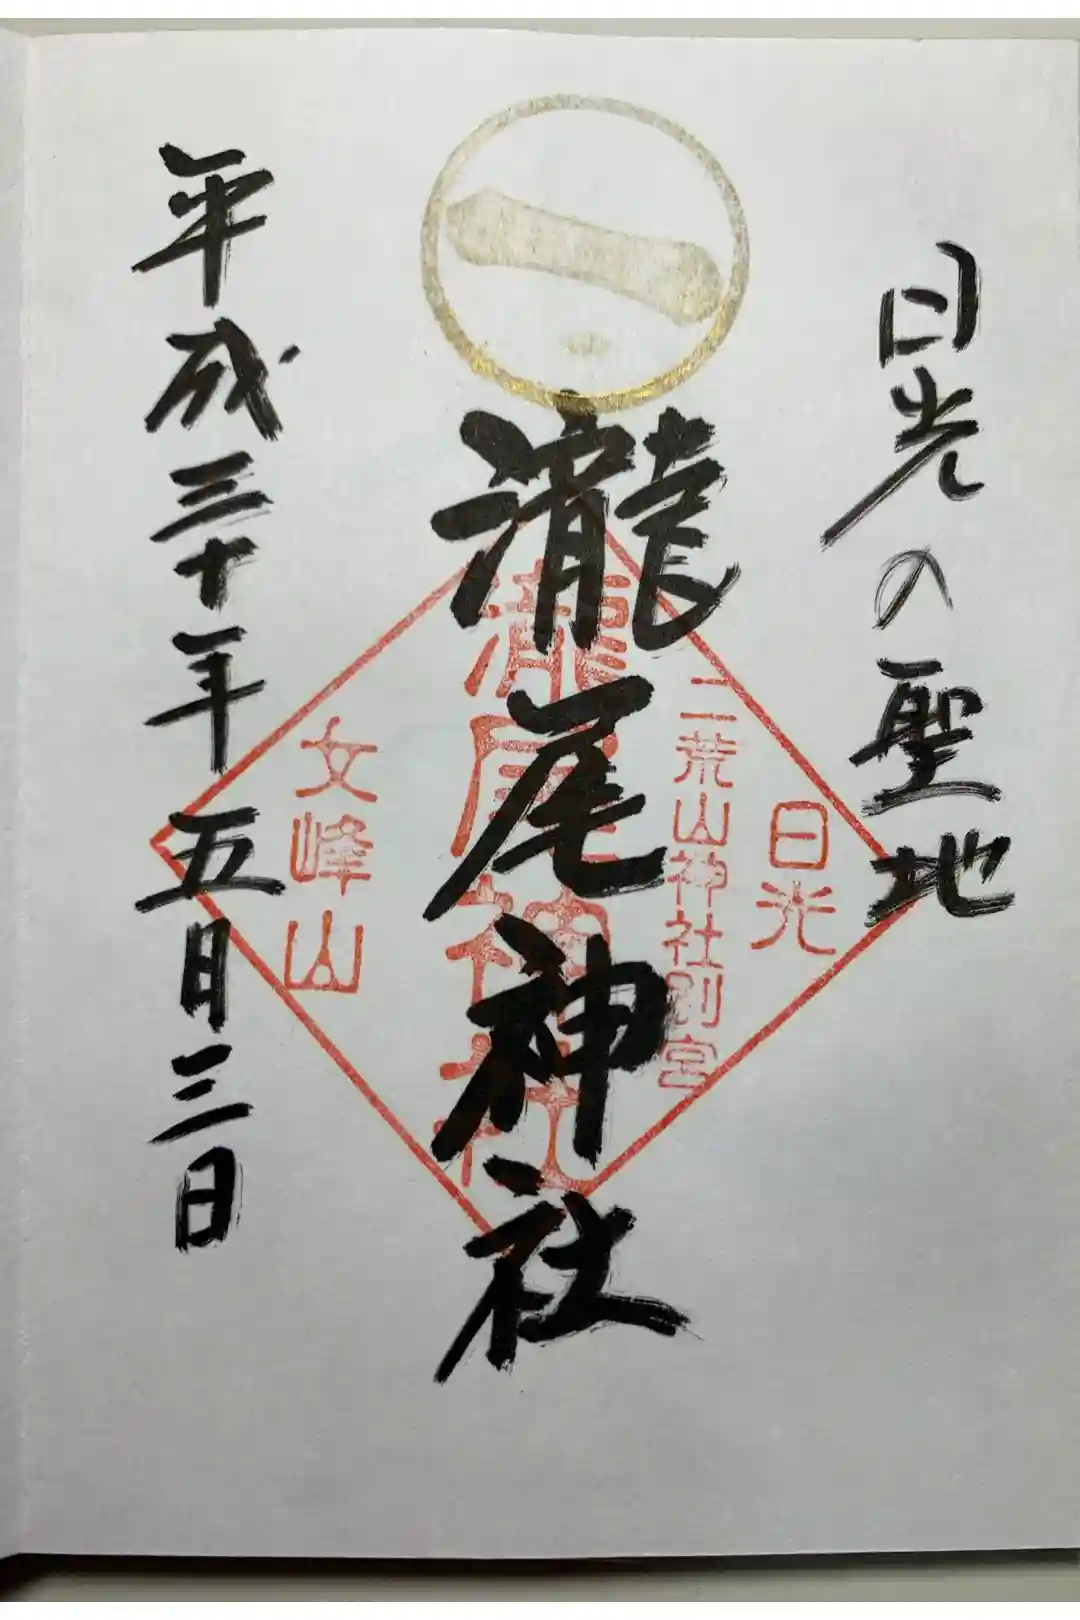 日光の聖地
日光
二荒山神社別宮
一
瀧尾神社
瀧尾神社
女峰山
平成三十年五月三日